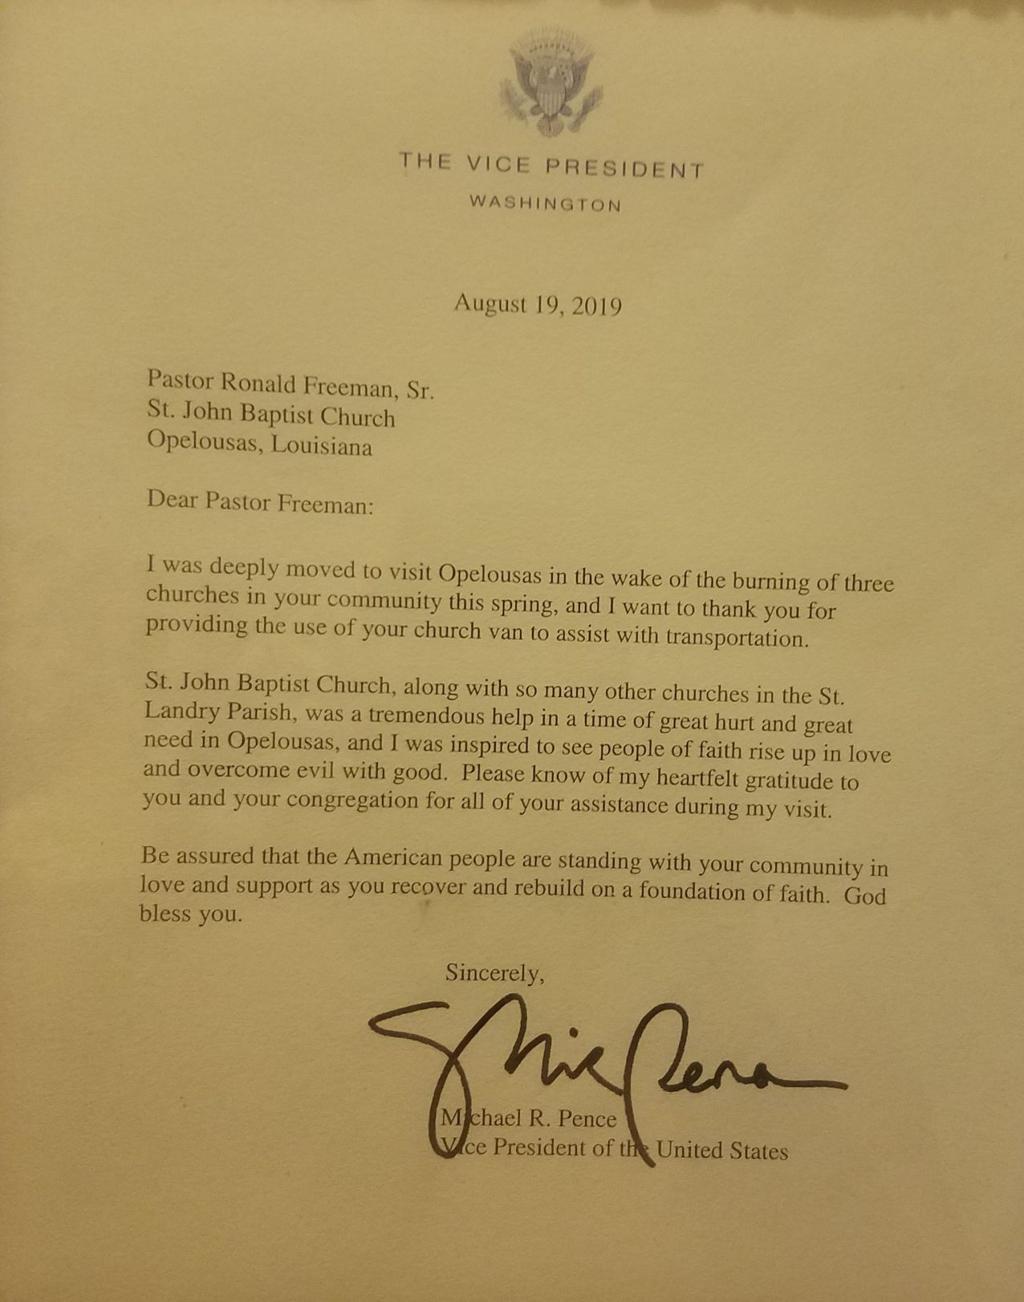 THE VICE PRESIDENT
WASHINGTON
August 19, 2019
Pastor Ronald Freeman, Sr.
St. John Baptist Church
Opelousas, Louisiana
Dear Pastor Freeman:
I was deeply moved to visit Opelousas in the wake of the burning of three
churches in your community this spring, and I want to thank you for
providing the use of your church van to assist with transportation.
St. John Baptist Church, along with so many other churches in the St.
Landry Parish, was a tremendous help in a time of great hurt and great
need in Opelousas, and I was inspired to see people of faith rise up in love
and overcome evil with good.  Please know of my heartfelt gratitude to
you and your congregation for all of your assistance during my visit.
Be assured that the American people are standing with your community in
love and support as you recover and rebuild on a foundation of faith.  God
bless you.
Sincerely,
Mike Pence
Michael R. Pence
Vice President of the United States